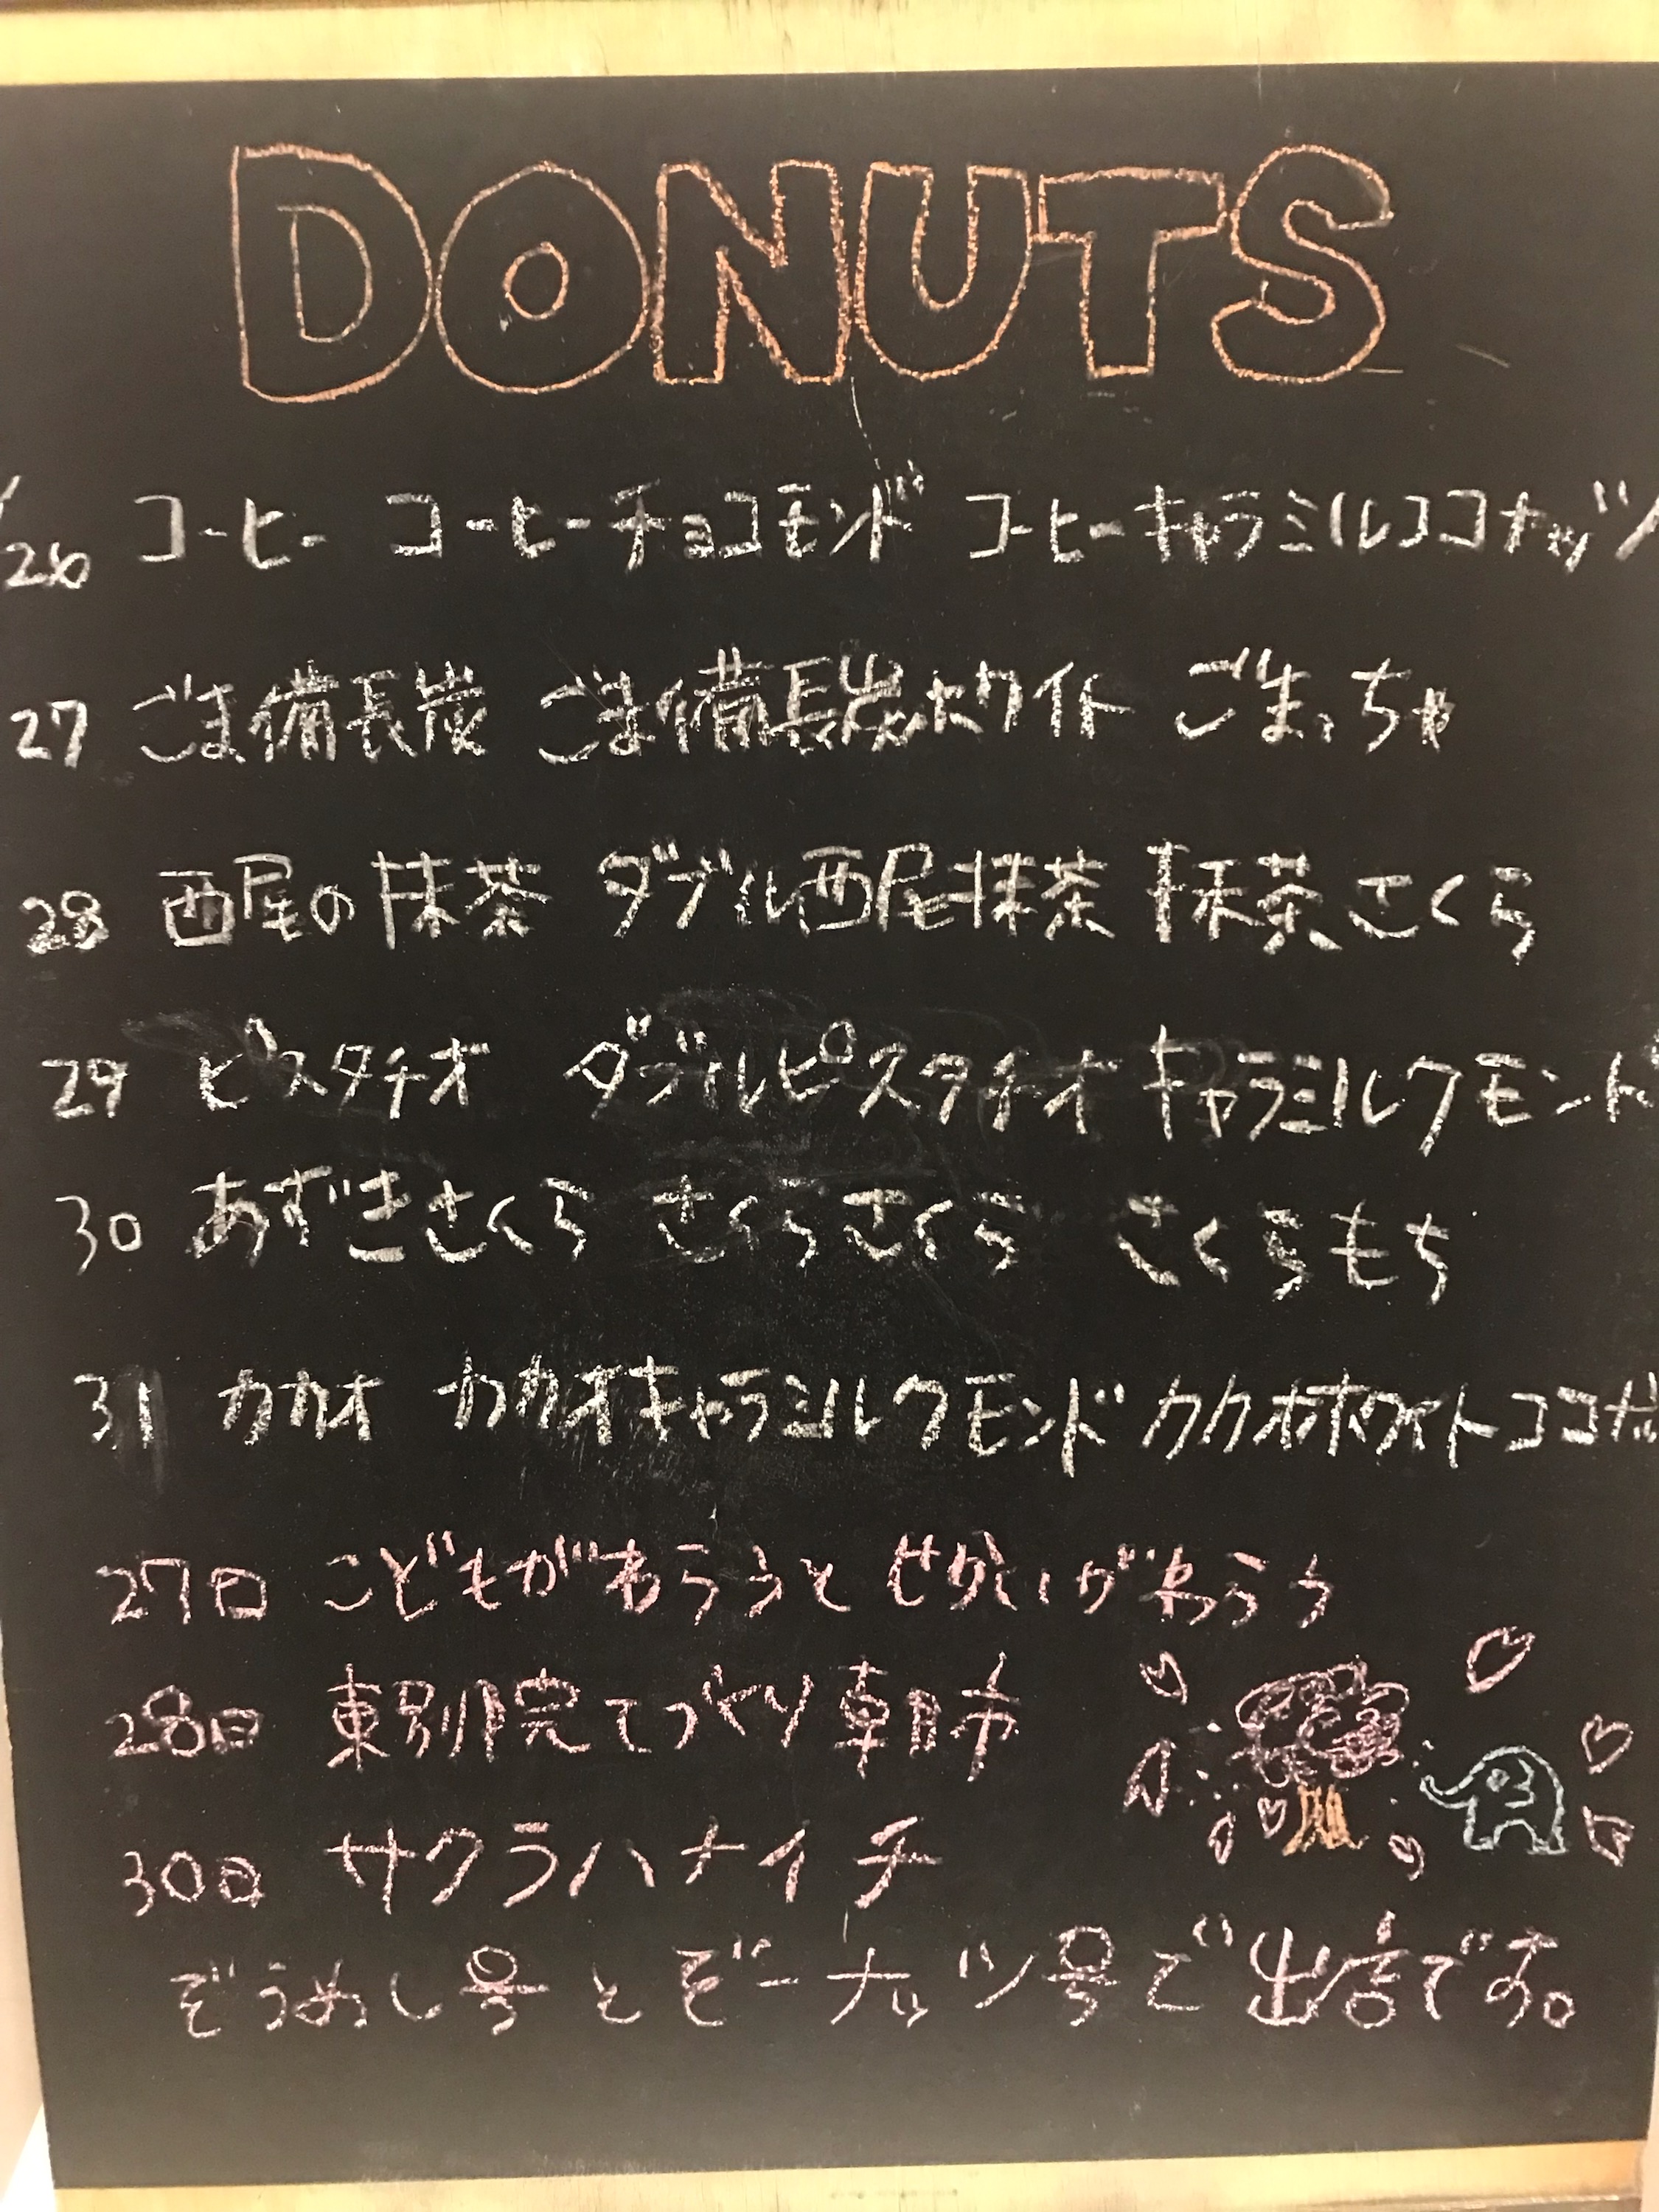 DONUTS
/26 コーヒー コーヒーチョコモンド コーヒーキャラミルココナッツ
27 ごま備長炭 ごま備長炭ホワイト ごまっちゃ
28 西尾の抹茶 ダブル西尾抹茶 抹茶さくら
29 ピスタチオ ダブルピスタチオ キャラミルクモンド
30 あずきさくら さくらさくら さくらもち
31 カカオ カカオキャラミルクモンド カカオホワイトココナッ
27日 こどもがわらうと せかいがわらう
28日 東別院てづくり朝市
30日 サクラハナイチ
ぞうめし号とゾーナッツ号で出店です。